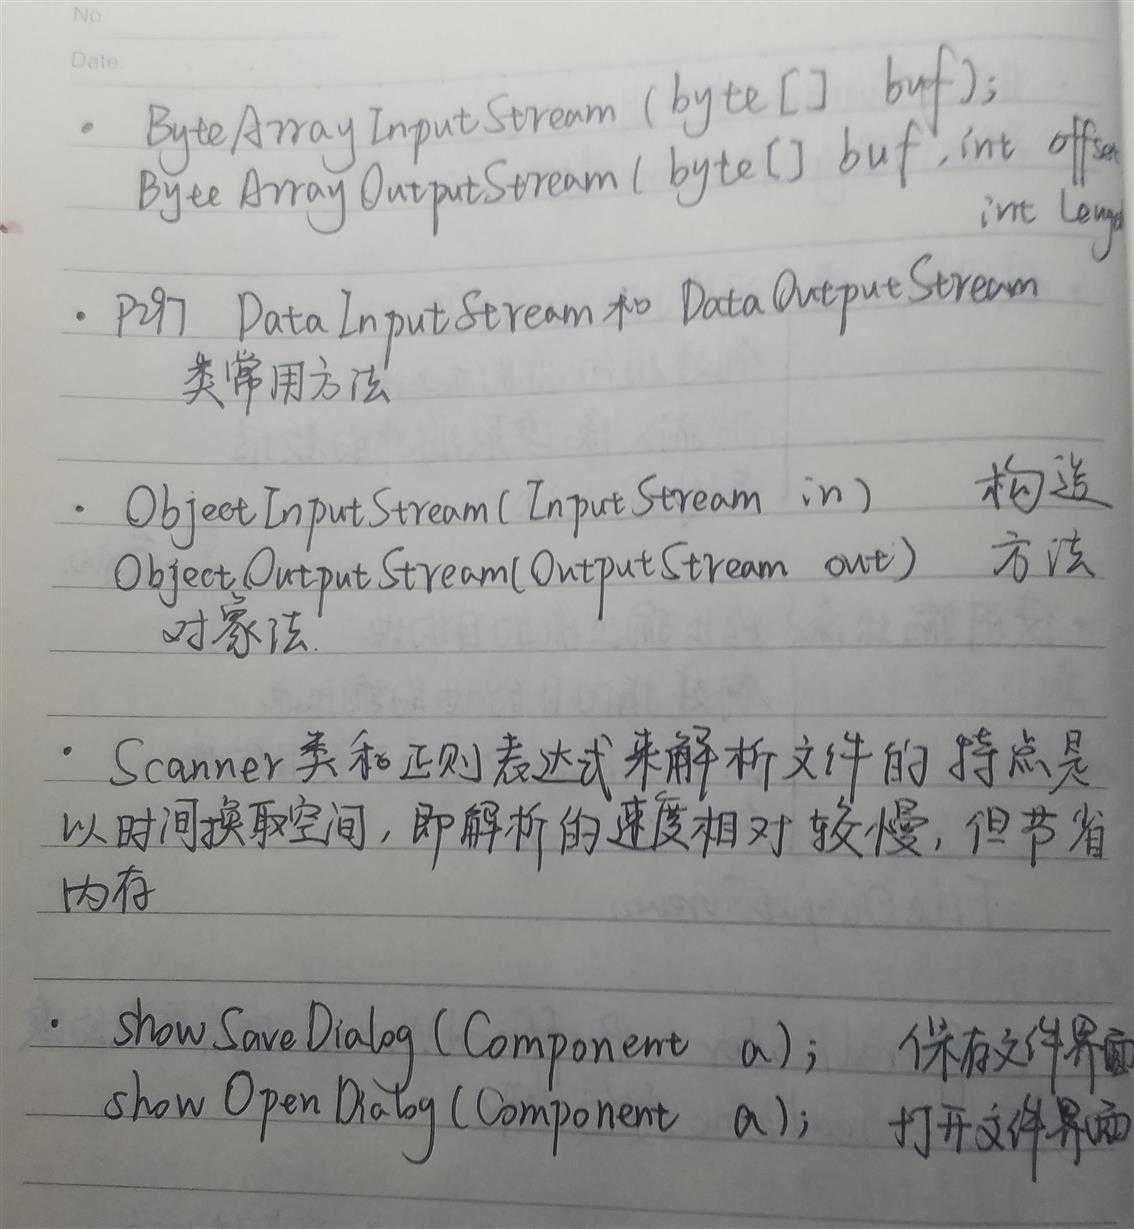 No
Date.
· ByteArrayInputStream (byte[] buf);
ByteArrayOutputStream( byte[] buf, int offset
int Length
· P297 DataInputStream 和 DataOutputStream
类常用方法
· ObjectInputStream( InputStream in) 构造
ObjectOutputStream(OutputStream out) 方法
对象法.
· Scanner 类和正则表达式来解析文件的特点是
以时间换取空间, 即解析的速度相对较慢, 但节省
内存
· showSaveDialog (Component a); 保存文件界面
show OpenDialog (Component a); 打开文件界面